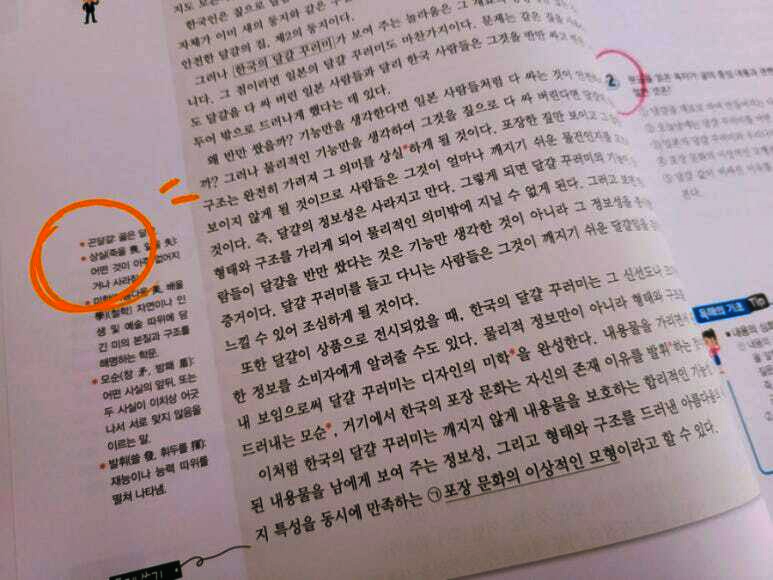 한국인은 짚으로
자체가 이미 새의 둥지와 같은
안전한 달걀의 집, 제2의 둥지이다.
그러나 한국의 달걀 꾸러미가 보여 주는 놀라움은 그
니다. 그 점이라면 일본의 달걀 꾸러미도 마찬가지이다. 문제는 같은 짚을
도 달걀을 다 싸 버린 일본 사람들과 달리 한국 사람들은 그것을 반만 싸고
두어 밖으로 드러나게 했다는 데 있다.
왜 반만 쌌을까? 기능만을 생각한다면 일본 사람들처럼 다 싸는 것이
까? 그러나 물리적인 기능만을 생각하여 그것을 짚으로 다 싸 버린다면 달걀
구조는 완전히 가려져 그 의미를 상실*하게 될 것이다. 포장한 짚만 보이고
보이지 않게 될 것이므로 사람들은 그것이 얼마나 깨지기 쉬운 물건인지를
것이다. 즉, 달걀의 정보성은 사라지고 만다. 그렇게 되면 달걀 꾸러미와
형태와 구조를 가리게 되어 물리적인 의미밖에 지닐 수 없게 된다. 그러고
람들이 달걀을 반만 쌌다는 것은 기능만 생각한 것이 아니라 그 정보성을
증거이다. 달걀 꾸러미를 들고 다니는 사람들은 그것이 깨지기 쉬운 달걀임을
느낄 수 있어 조심하게 될 것이다.
또한 달걀이 상품으로 전시되었을 때, 한국의 달걀 꾸러미는 그 신선도나
한 정보를 소비자에게 알려줄 수도 있다. 물리적 정보만이 아니라 형태와 구조
내 보임으로써 달걀 꾸러미는 디자인의 미학*을 완성한다. 내용물을 가리면서
드러내는 모순*, 거기에서 한국의 포장 문화는 자신의 존재 이유를 발휘*하는
이처럼 한국의 달걀 꾸러미는 깨지지 않게 내용물을 보호하는 합리적인 기능
된 내용물을 남에게 보여 주는 정보성, 그리고 형태와 구조를 드러낸 아름다움의
지 특성을 동시에 만족하는 ㉠포장 문화의 이상적인 모형이라고 할 수 있다.
* 곤달걀: 곯은
* 상실(죽을 喪, 잃을 失):
어떤 것이 아주 없어지
거나 사라짐.
배울
學)(철학) 자연이나 인
생 및 예술 따위에 담
긴 미의 본질과 구조를
해명하는 학문.
* 모순(창 矛, 방패 盾):
어떤 사실의 앞뒤, 또는
두 사실이 이치상 어긋
나서 서로 맞지 않음을
이르는 말.
* 발휘(쏠 發, 휘두를 揮):
재능이나 능력 따위를
떨쳐 나타냄.
2
독해의 기초 Tip